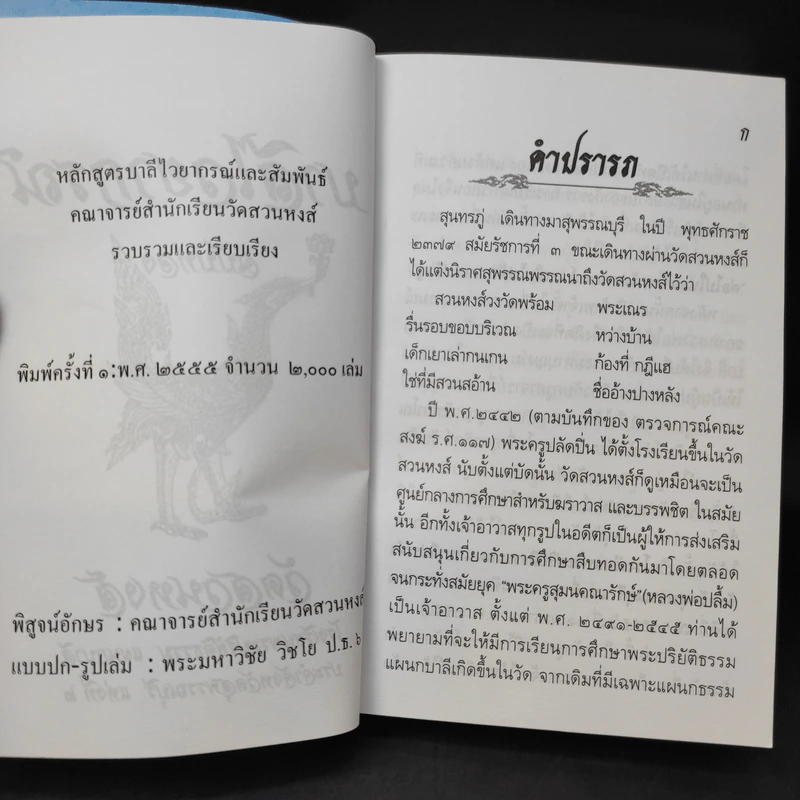 หลักสูตรบาลีไวยากรณ์และสัมพันธ์
คณาจารย์สำนักเรียนวัดสวนหงส์
รวบรวมและเรียบเรียง
พิมพ์ครั้งที่ ๑:พ.ศ. ๒๕๕๕ จำนวน ๒,๐๐๐ เล่ม
พิสูจน์อักษร : คณาจารย์สำนักเรียนวัดสวนหงส์
แบบปก-รูปเล่ม : พระมหาวิชัย วิชโย ป.ธ. ๖
ก
คำปรารภ
สุนทรภู่ เดินทางมาสุพรรณบุรี ในปี พุทธศักราช
๒๓๗๙ สมัยรัชการที่ ๓ ขณะเดินทางผ่านวัดสวนหงส์ก็
ได้แต่งนิราศสุพรรณพรรณนาถึงวัดสวนหงส์ไว้ว่า
สวนหงส์วงวัดพร้อม พระเณร
รื่นรอบขอบบริเวณ หว่างบ้าน
เด็กเยาเล่ากนเกณ ก้องที่ กฎีแฮ
ใช่ที่มีสวนสอ้าน ชื่ออ้างปางหลัง
ปี พ.ศ.๒๔๔๒ (ตามบันทึกของ ตรวจการณ์คณะ
สงฆ์ ร.ศ.๑๑๗) พระครูปลัดปิ่น ได้ตั้งโรงเรียนขึ้นในวัด
สวนหงส์ นับตั้งแต่บัดนั้น วัดสวนหงส์ก็ดูเหมือนจะเป็น
ศูนย์กลางการศึกษาสำหรับฆราวาส และบรรพชิต ในสมัย
นั้น อีกทั้งเจ้าอาวาสทุกรูปในอดีตก็เป็นผู้ให้การส่งเสริม
สนับสนุนเกี่ยวกับการศึกษาสืบทอดกันมาโดยตลอด
จนกระทั่งสมัยยุค “พระครูสุมนคณารักษ์”(หลวงพ่อปลื้ม)
เป็นเจ้าอาวาส ตั้งแต่ พ.ศ. ๒๔๙๑-๒๕๔๕ ท่านได้
พยายามที่จะให้มีการเรียนการศึกษาพระปริยัติธรรม
แผนกบาลีเกิดขึ้นในวัด จากเดิมที่มีเฉพาะแผนกธรรม